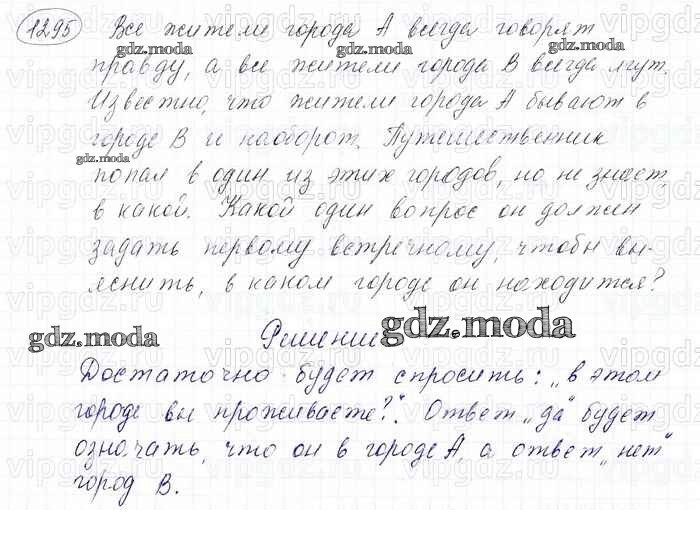 1295 Все жители города А всегда говорят
правду, а все жители города В всегда лгут.
Известно, что жители города А бывают в
городе В и наоборот. Путешественник
попал в один из этих городов, но не знает,
в какой. Какой один вопрос он должен
задать первому встречному, чтобы вы-
яснить, в каком городе он находится?
Решение
Достаточно будет спросить: "в этом
городе вы проживаете?". Ответ "да" будет
означать, что он в городе А, а ответ "нет"
город В.
gdz.moda
gdz.moda
gdz.moda
gdz.moda
gdz.moda
vipgdz.ru